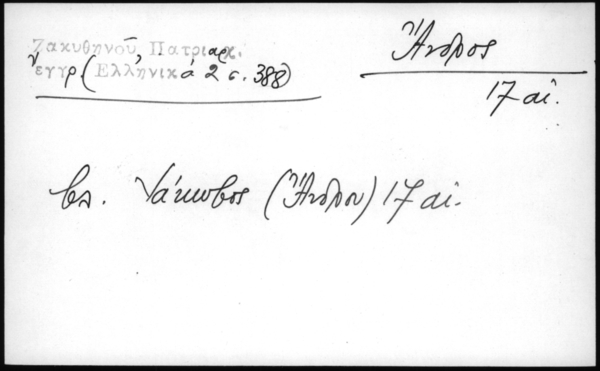 Ζακυθηνοῦ, Πατριαρχ.
ἔγγρ. (Ἑλληνικά 2 σ. 388)
Ἄνδρος
17 αἰ.
βλ. Ἰάκωβος (Ἄνδρου) 17 αἰ.